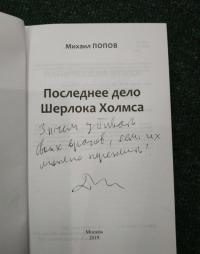 Михаил ПОПОВ
Последнее дело
Шерлока Холмса
Зачем убивать
своих врагов, если их
можно пережить!
Москва
2019